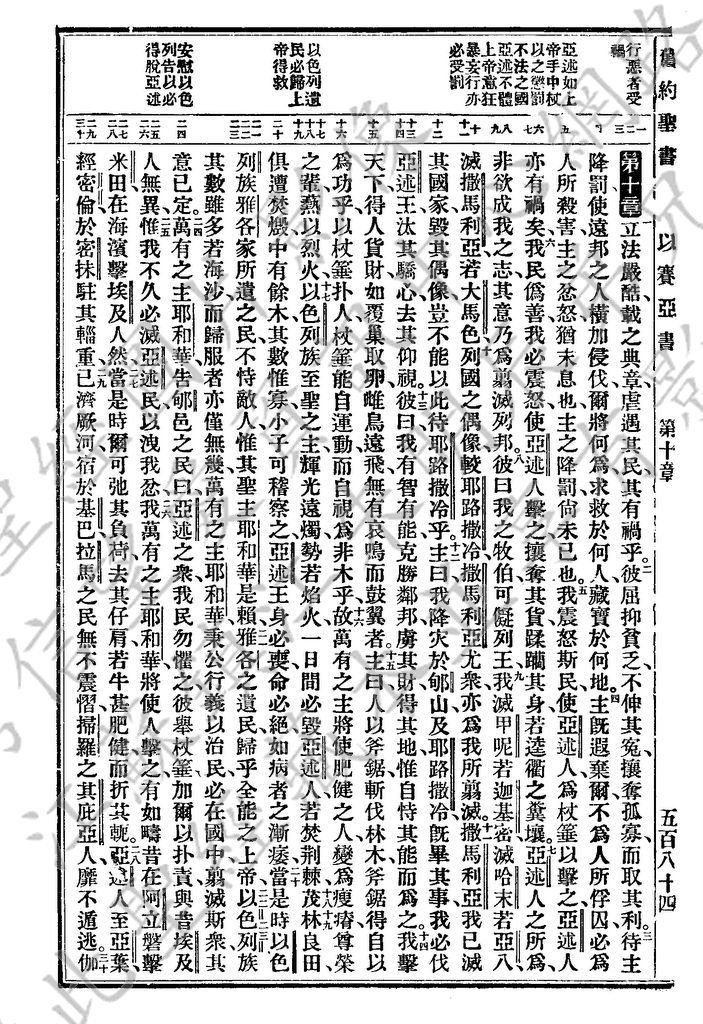 舊約聖書 以賽亞書 第十章 五百八十四
行惡者受禍
亞述如上帝手中杖以之懲罰不法之國
亞述不體上帝意狂暴妄行亦必受罰
以色列遺民必歸上帝得救
安慰以色列告以必得脫亞述
第十章 立法嚴酷載之典章虐遇其民其有禍乎彼屈抑貧乏不伸其冤攘奪孤寡而取其利待主
降罰使遠邦之人橫加侵伐爾將何爲求救於何人藏寶於何地主旣遐棄爾不爲人所俘囚必爲
人所殺害主之忿怒猶未息也主之降罰尙未已也我震怒斯民使亞述人爲杖箠以擊之亞述人
亦有禍矣我民僞善我必震怒使亞述人擊之攘奪其貨蹂躪其身若逵衢之糞壤亞述人之所爲
非欲成我之志其意乃爲翦滅列邦彼曰我之牧伯可儗列王我滅甲呢若迦基密滅哈末若亞八
滅撒馬利亞若大馬色列國之偶像較耶路撒冷撒馬利亞尤衆亦爲我所翦滅撒馬利亞我已滅
其國家毀其偶像豈不能以此待耶路撒冷乎主曰我降災於郇山及耶路撒冷旣畢其事我必伐
亞述王汰其驕心去其仰視彼曰我有智有能克勝鄰邦虜其財得其地惟自恃其能而爲之我擊
天下得人貨財如覆巢取卵雌鳥遠飛無有哀鳴而鼓翼者主曰人以斧鋸斬伐林木斧鋸得自以
爲功乎以杖箠扑人杖箠能自運動而自視爲非木乎故萬有之主將使肥健之人變爲瘦瘠尊榮
之輩爇以烈火以色列族至聖之主輝光遠燭勢若焰火一日間必毀亞述人若焚荆棘茂林良田
俱遭焚燬中有餘木其數惟寡小子可稽察之亞述王身必喪命必絕如病者之漸痿當是時以色
列族雅各家所遺之民不恃敵人惟其聖主耶和華是賴雅各之遺民歸乎全能之上帝以色列族
其數雖多若海沙而歸服者亦僅無幾萬有之主耶和華秉公行義以治民必在國中翦滅斯衆其
意已定萬有之主耶和華告郇邑之民曰亞述之衆我民勿懼之彼舉杖箠加爾以扑責與昔埃及
人無異惟我不久必滅亞述民以洩我忿我萬有之主耶和華將使人擊之有如疇昔在阿立磐擊
米田在海濱擊埃及人然當是時爾可弛其負荷去其仔肩若牛甚肥健而折其軛亞述人至亞葉
經密倫於密抹駐其輜重已濟厥河宿於基巴拉馬之民無不震慴掃羅之其庇亞人靡不遁逃伽